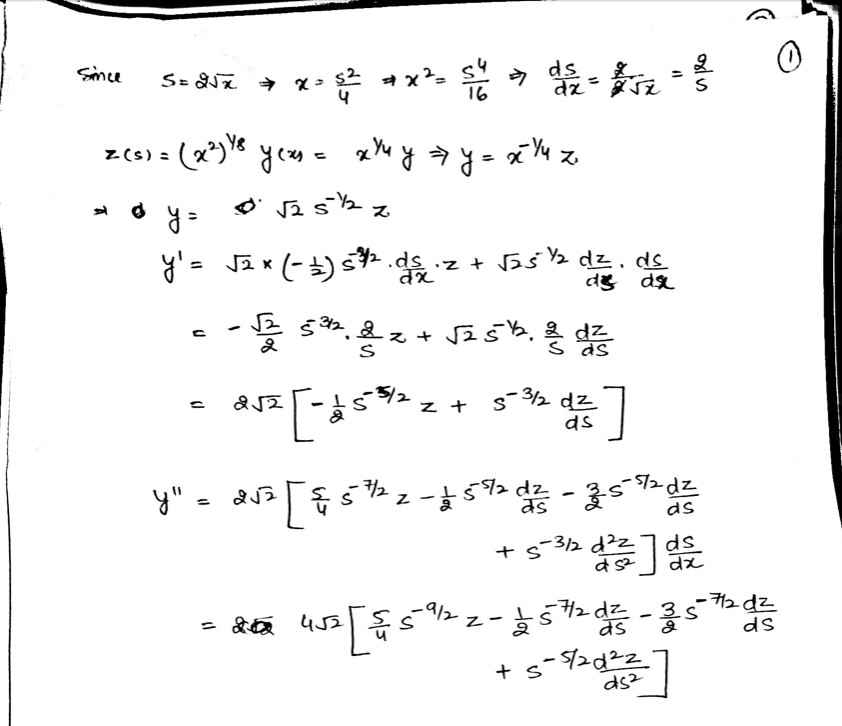 ①
Since S = 2√x → x = s²/4 ⇒ x² = s⁴/16 ⇒ ds/dx = 2/2√x = 2/s
z(s) = (x²)^{1/8} y(x) = x^{1/4} y ⇒ y = x^{-1/4} z
⇒ y = √2 s^{-1/2} z
y' = √2 × (-1/2) s^{-3/2} · ds/dx · z + √2 s^{-1/2} dz/ds · ds/dx
= -√2/2 s^{-3/2} · 2/s z + √2 s^{-1/2} · 2/s dz/ds
= 2√2 [ -1/2 s^{-5/2} z + s^{-3/2} dz/ds ]
y'' = 2√2 [ 5/4 s^{-7/2} z - 1/2 s^{-5/2} dz/ds - 3/2 s^{-5/2} dz/ds
+ s^{-3/2} d²z/ds² ] ds/dx
= 4√2 [ 5/4 s^{-9/2} z - 1/2 s^{-7/2} dz/ds - 3/2 s^{-7/2} dz/ds
+ s^{-5/2} d²z/ds² ]